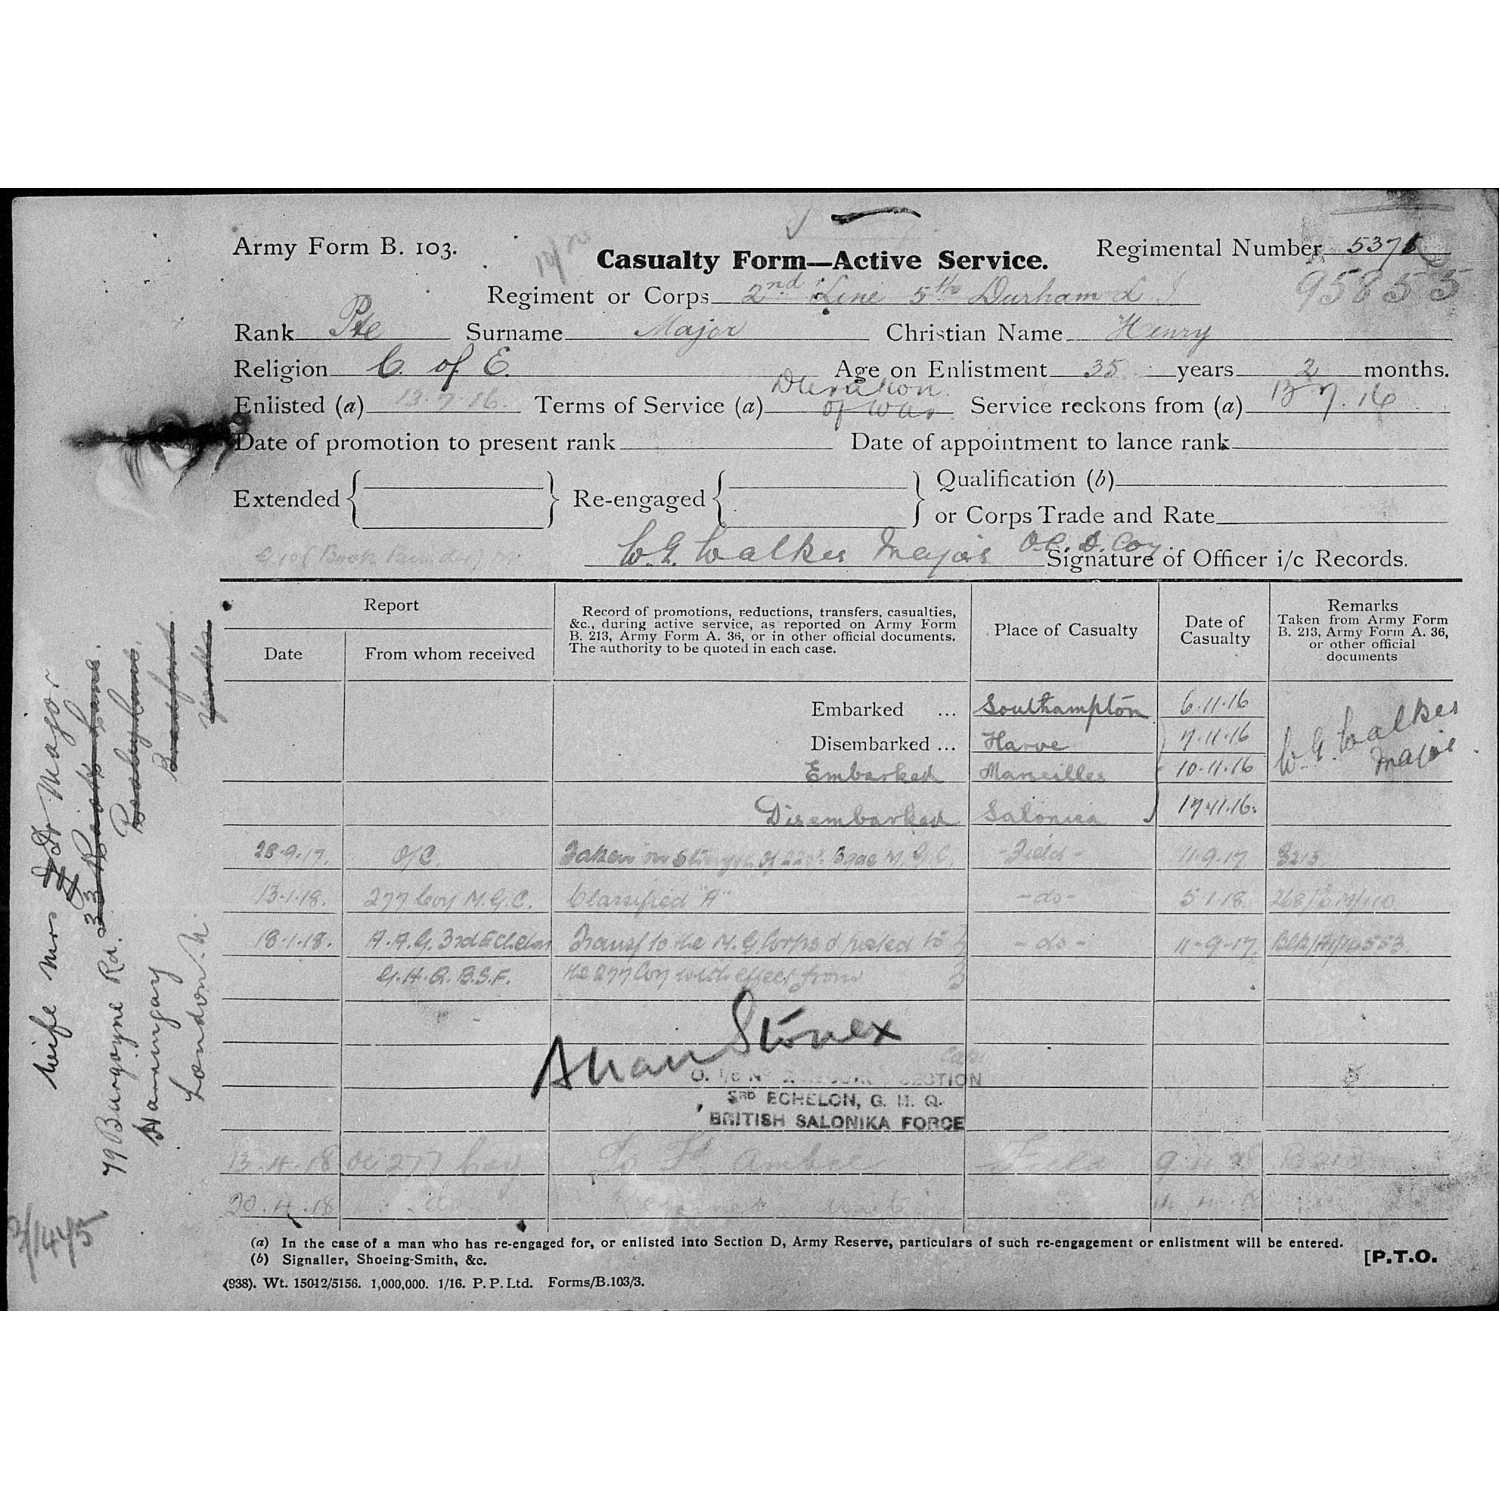 Army Form B. 103.
Casualty Form—Active Service.
Regimental Number 5371
95855
Regiment or Corps 2nd Line 5th Durham L I
Rank Pte Surname Major Christian Name Henry
Religion C. of E. Age on Enlistment 35 years 2 months.
Enlisted (a) 13.7.16 Terms of Service (a) Duration of War Service reckons from (a) 13.7.16
Date of promotion to present rank Date of appointment to lance rank
Extended Re-engaged Qualification (b)
or Corps Trade and Rate
W.G. Walker Major O.C. D. Coy. Signature of Officer i/c Records.
Report
Date From whom received
Record of promotions, reductions, transfers, casualties,
&c., during active service, as reported on Army Form
B. 213, Army Form A. 36, or in other official documents.
The authority to be quoted in each case.
Place of Casualty
Date of
Casualty
Remarks
Taken from Army Form
B. 213, Army Form A. 36,
or other official
documents
Embarked ... Southampton 6.11.16
Disembarked ... Harve 7.11.16 W.G. Walker
Embarked Marseilles 10.11.16 Major
Disembarked Salonica 17.11.16.
28.9.17. O/C. Taken on Strength of M.G.C. -Field- 11.9.17 B213
13.1.18. 277 Coy M.G.C. Classified "A" -do- 5.1.18
18.1.18. A.A.G. 3rd Echelon Transf to the M.G. Corps & posted to -do- 11-9-17.
G.H.Q. B.S.F. the 277 Coy with effect from
Allan Stonex
Capt
SECTION
3RD ECHELON, G. H. Q.
BRITISH SALONIKA FORCE
13.4.18 OC 277 Coy To Fd Ambce Field
20.4.18 Unit
(a) In the case of a man who has re-engaged for, or enlisted into Section D, Army Reserve, particulars of such re-engagement or enlistment will be entered.
(b) Signaller, Shoeing-Smith, &c.
[P.T.O.
(938). Wt. 15012/5156. 1,000,000. 1/16. P. P. Ltd. Forms/B.103/3.
Wife Mrs Major
Lane.
Bradford
Yorks
79 Burgoyne Rd.
Harringay
London. N.